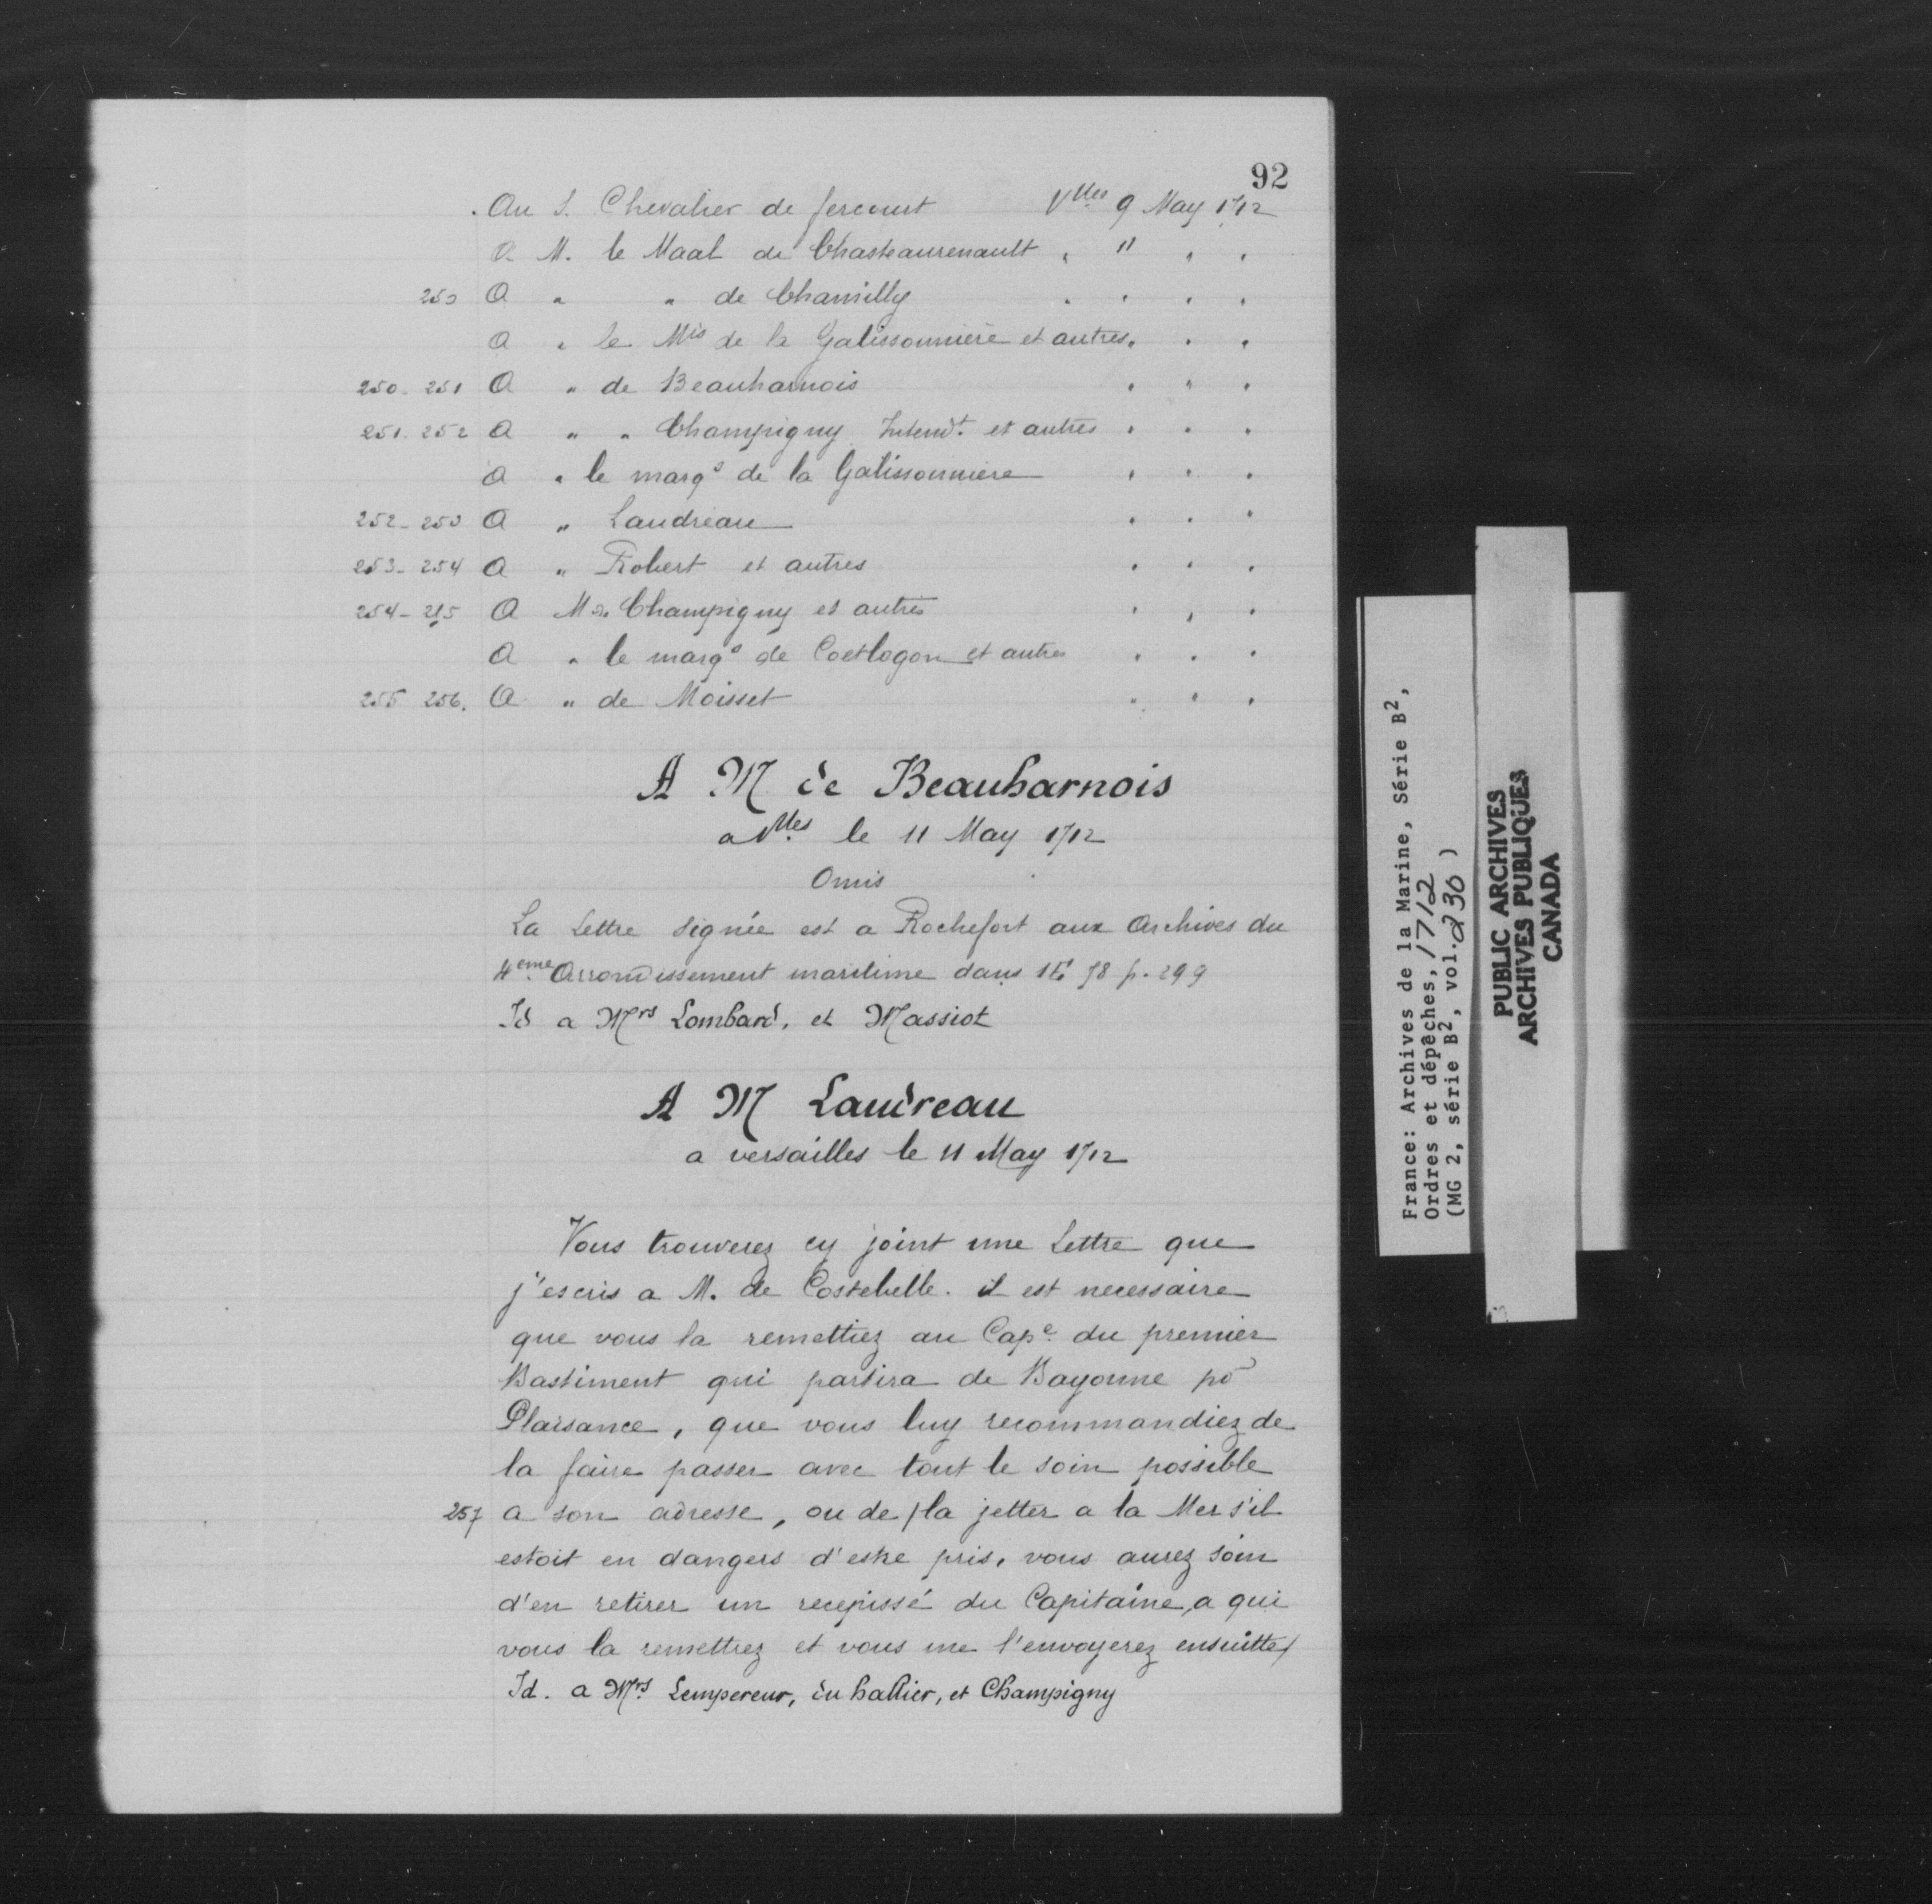 92
Au S. Chevalier de fercourt Vlles 9 May 1712
a M. le Maal de Chasteaurenault " 11 " "
250 A " " de Chamilly " " " "
A " le Mis de la Galissonniere et autres " " "
250 - 251 A " de Beauharnois " " "
251. 252 A " " Champigny Intendt. et autres " " "
A " le marqs de la Galissonniere " " "
252 - 253 A " Landreau " " "
253 - 254 A " Robert et autres " " "
254 - 255 A Mrs Champigny et autres " " "
A " le marqs de Coetlogon et autres " " "
255 256. A " de Moisset " " "
A M de Beauharnois
a Vlles le 11 May 1712
Omis
La Lettre signée est a Rochefort aux Archives du
4eme Arrondissement maritime dans 1E 78 p. 299
Id a Mrs Lombard, et Massiot
A M Landreau
a versailles le 11 May 1712
Vous trouverez cy joint une Lettre que
j'escris a M. de Costebelle. il est necessaire
que vous la remettiez au Cape. du premier
Bastiment qui partira de Bayonne po
Plaisance, que vous luy recommandiez de
la faire passer avec tout le soin possible
257 a son adresse, ou de / la jetter a la Mer s'il
estoit en dangers d'estre pris, vous aurez soin
d'en retirer un recepissé du Capitaine, a qui
vous la remettrez et vous me l'envoyerez ensuitte/
Id. a Mrs Lempereur, du hallier, et Champigny
France: Archives de la Marine, Série B2,
Ordres et dépêches, 1712
(MG 2, série B2, vol. 230 )
PUBLIC ARCHIVES
ARCHIVES PUBLIQUES
CANADA